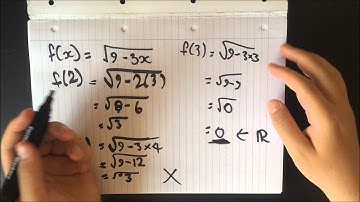 f(x) = √9-3x
f(2) = √9-2(3)
= √9-6
= √3
= √9-3×4
= √9-12
= √-3 X
f(3) = √9-3×3
= √9-9
= √0
= 0 ← ℝ